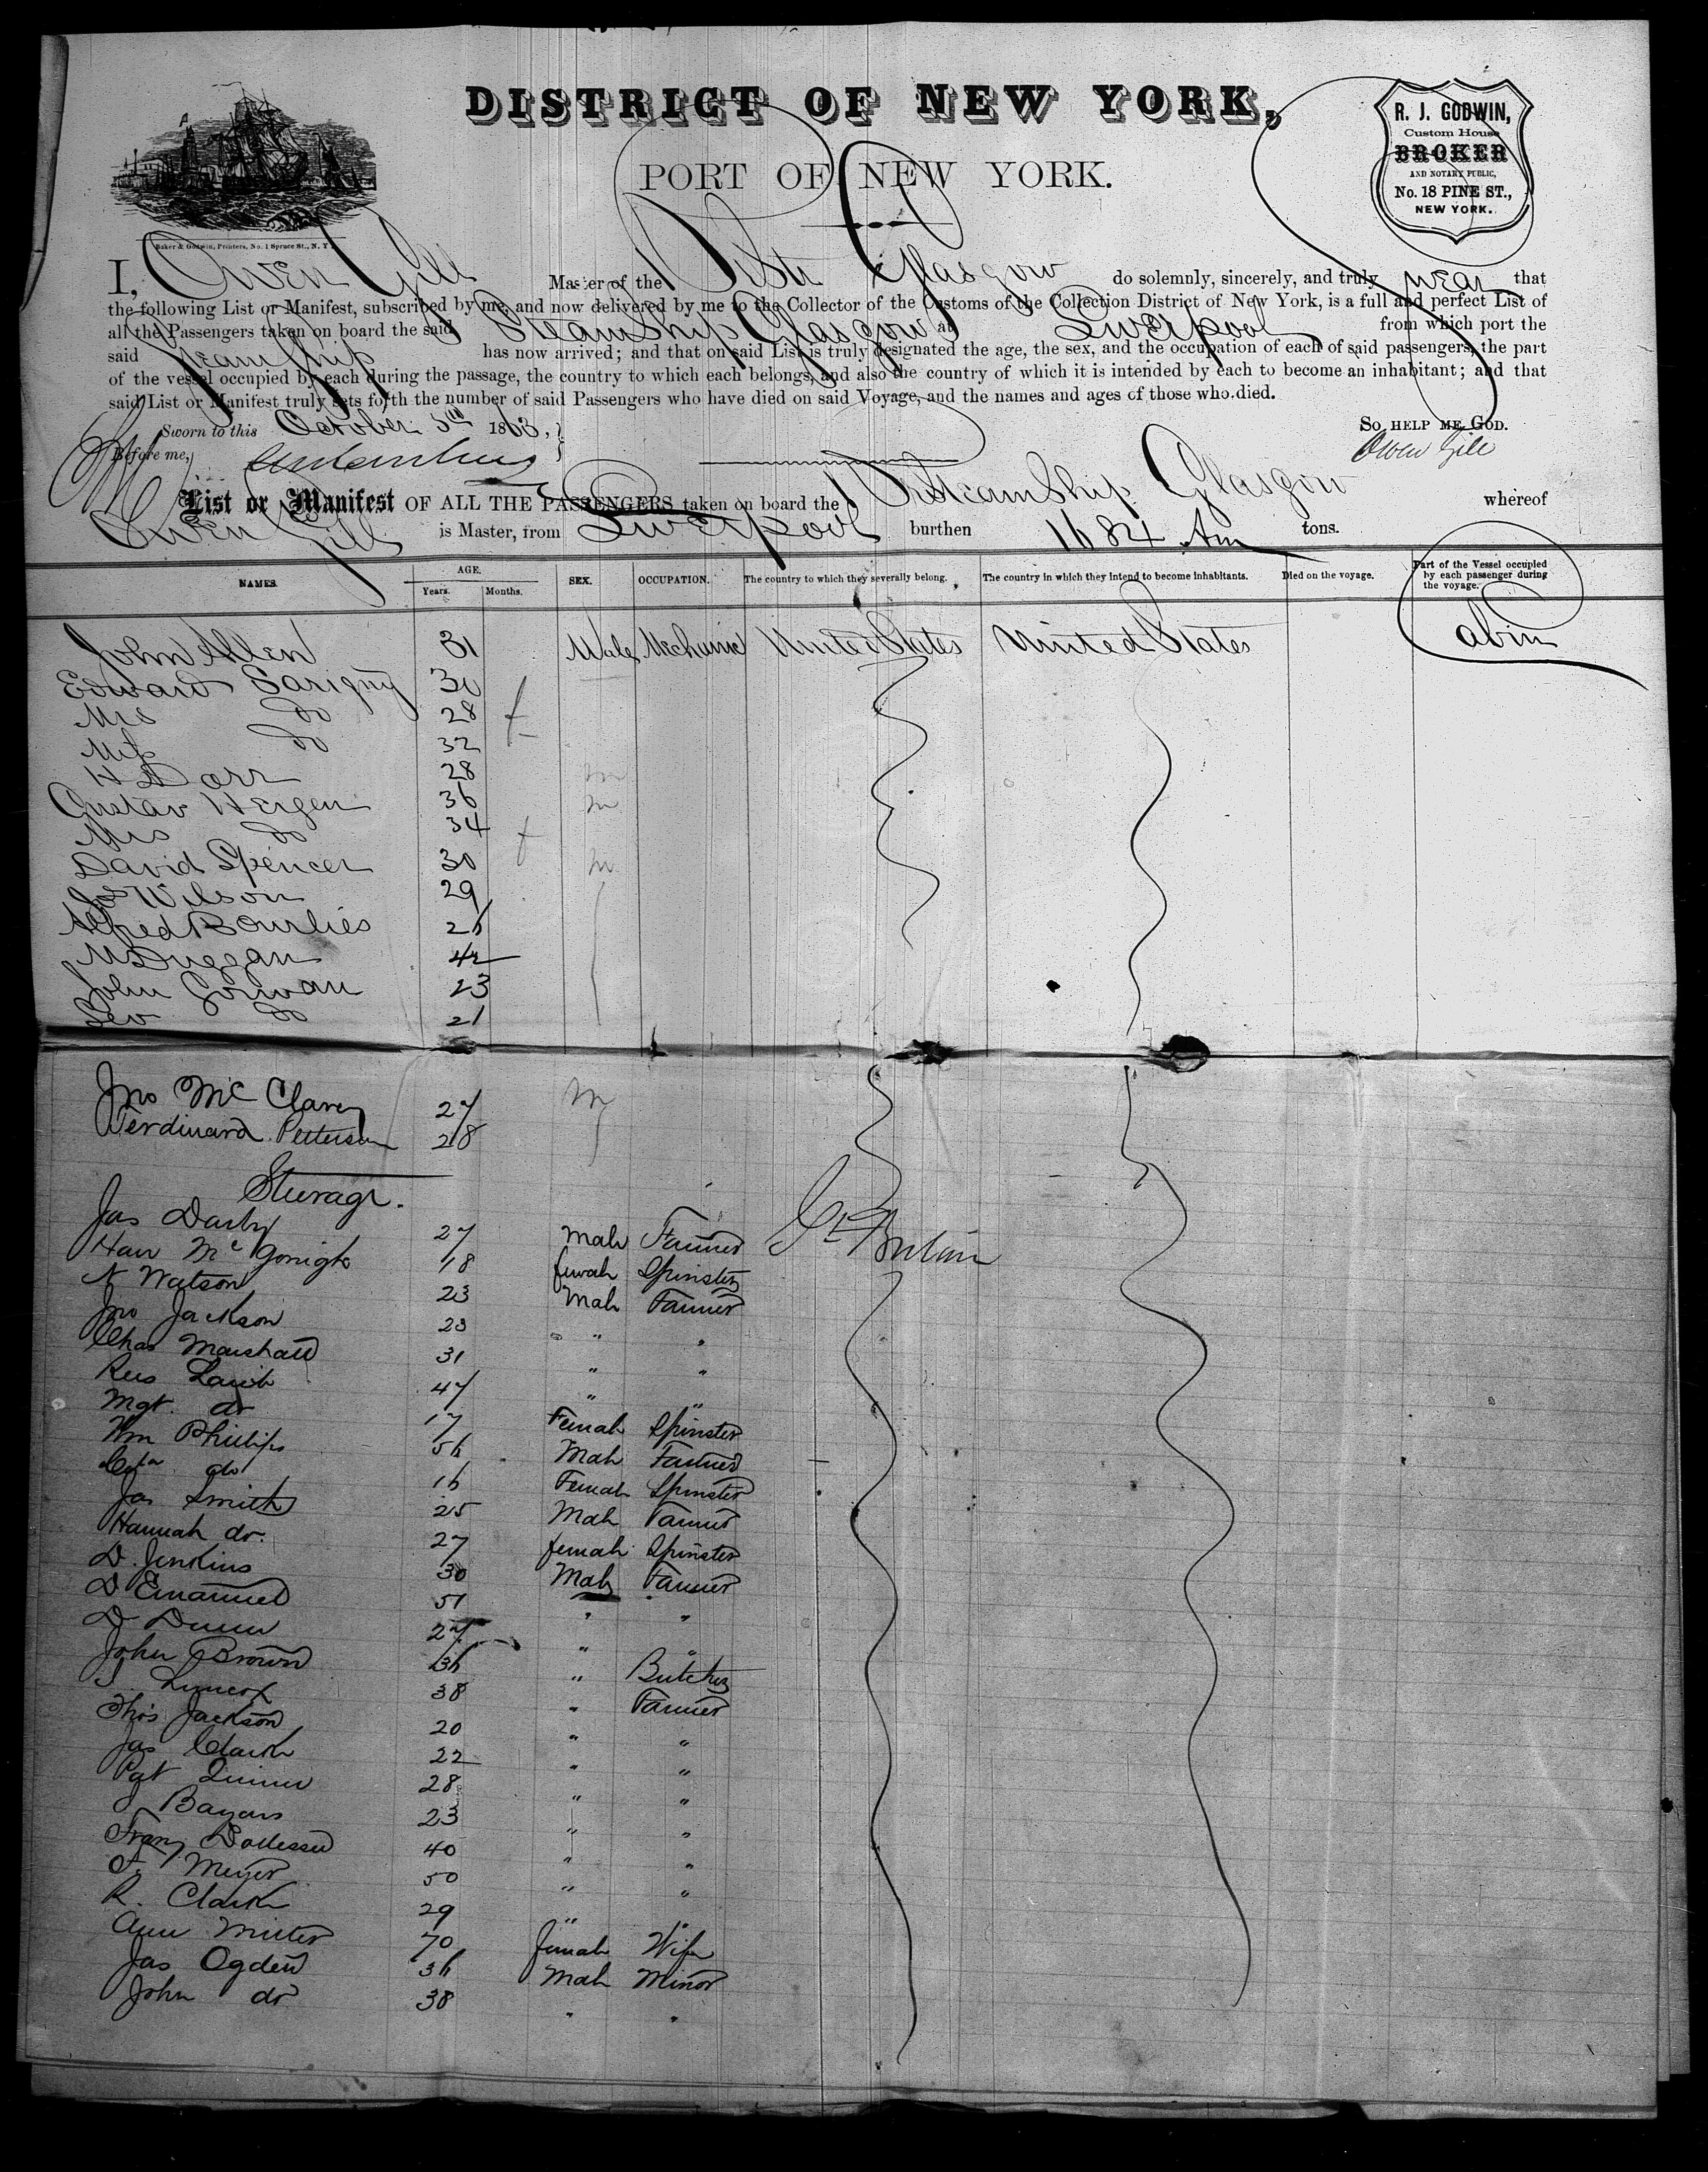 DISTRICT OF NEW YORK,
PORT OF NEW YORK.
R. J. GODWIN,
Custom House
BROKER
AND NOTARY PUBLIC,
No. 18 PINE ST.,
NEW YORK.
Baker & Godwin, Printers, No. 1 Spruce St., N. Y.
I, Owen Gill Master of the Br Str Glasgow do solemnly, sincerely, and truly swear that
the following List or Manifest, subscribed by me, and now delivered by me to the Collector of the Customs of the Collection District of New York, is a full and perfect List of
all the Passengers taken on board the said Steam Ship Glasgow at Liverpool from which port the
said Steam Ship has now arrived; and that on said List is truly designated the age, the sex, and the occupation of each of said passengers, the part
of the vessel occupied by each during the passage, the country to which each belongs, and also the country of which it is intended by each to become an inhabitant; and that
said List or Manifest truly sets forth the number of said Passengers who have died on said Voyage, and the names and ages of those who died.
Sworn to this October 5th 1863, So HELP ME GOD.
Before me, Owen Gill
List or Manifest OF ALL THE PASSENGERS taken on board the Br Steam Ship Glasgow whereof
Owen Gill is Master, from Liverpool burthen 1684 tons.
NAMES. AGE. Years. Months. SEX. OCCUPATION. The country to which they severally belong. The country in which they intend to become inhabitants. Died on the voyage. Part of the Vessel occupied by each passenger during the voyage.
John Allen 31 Male Mechanic United States United States Cabin
Edward 30
Mrs do 28 f
Miss do 32
H Dorr 28 m
Gustav 36 m
Mrs do 34 f
David Spencer 30 m
Jas Wilson 29
Alfred Bourlies 26
M Duggan 42
John Gorwan 23
do 21
Jno Mc Clarey 27 m
Ferdinand Petterson 28
Steerage.
Jas Darby 27 Male Farmer Gt Britain
Han Mc Gonigle 18 female Spinster
N Watson 23 Male Farmer
Jno Jackson 23 " "
Chas Marshall 31 " "
Rees 47 " "
Mgt do 17 Female Spinster
Wm Phillips 56 Male Farmer
do 16 Female Spinster
Jas Smith 25 Male Farmer
Hannah do. 27 female Spinster
D. Jenkins 30 Male Farmer
D Emanuel 51 " "
D Dunn 27 " "
John Brown 36 " Butcher
38 " Farmer
Thos Jackson 20 " "
Jas Clark 22 " "
Pat Quinn 28 " "
23 " "
Franz 40 " "
F. Meyer 50 " "
R. Clark 29 " "
Ann 70 female Wife
Jas Ogden 36 Male Minor
John do 38 " "